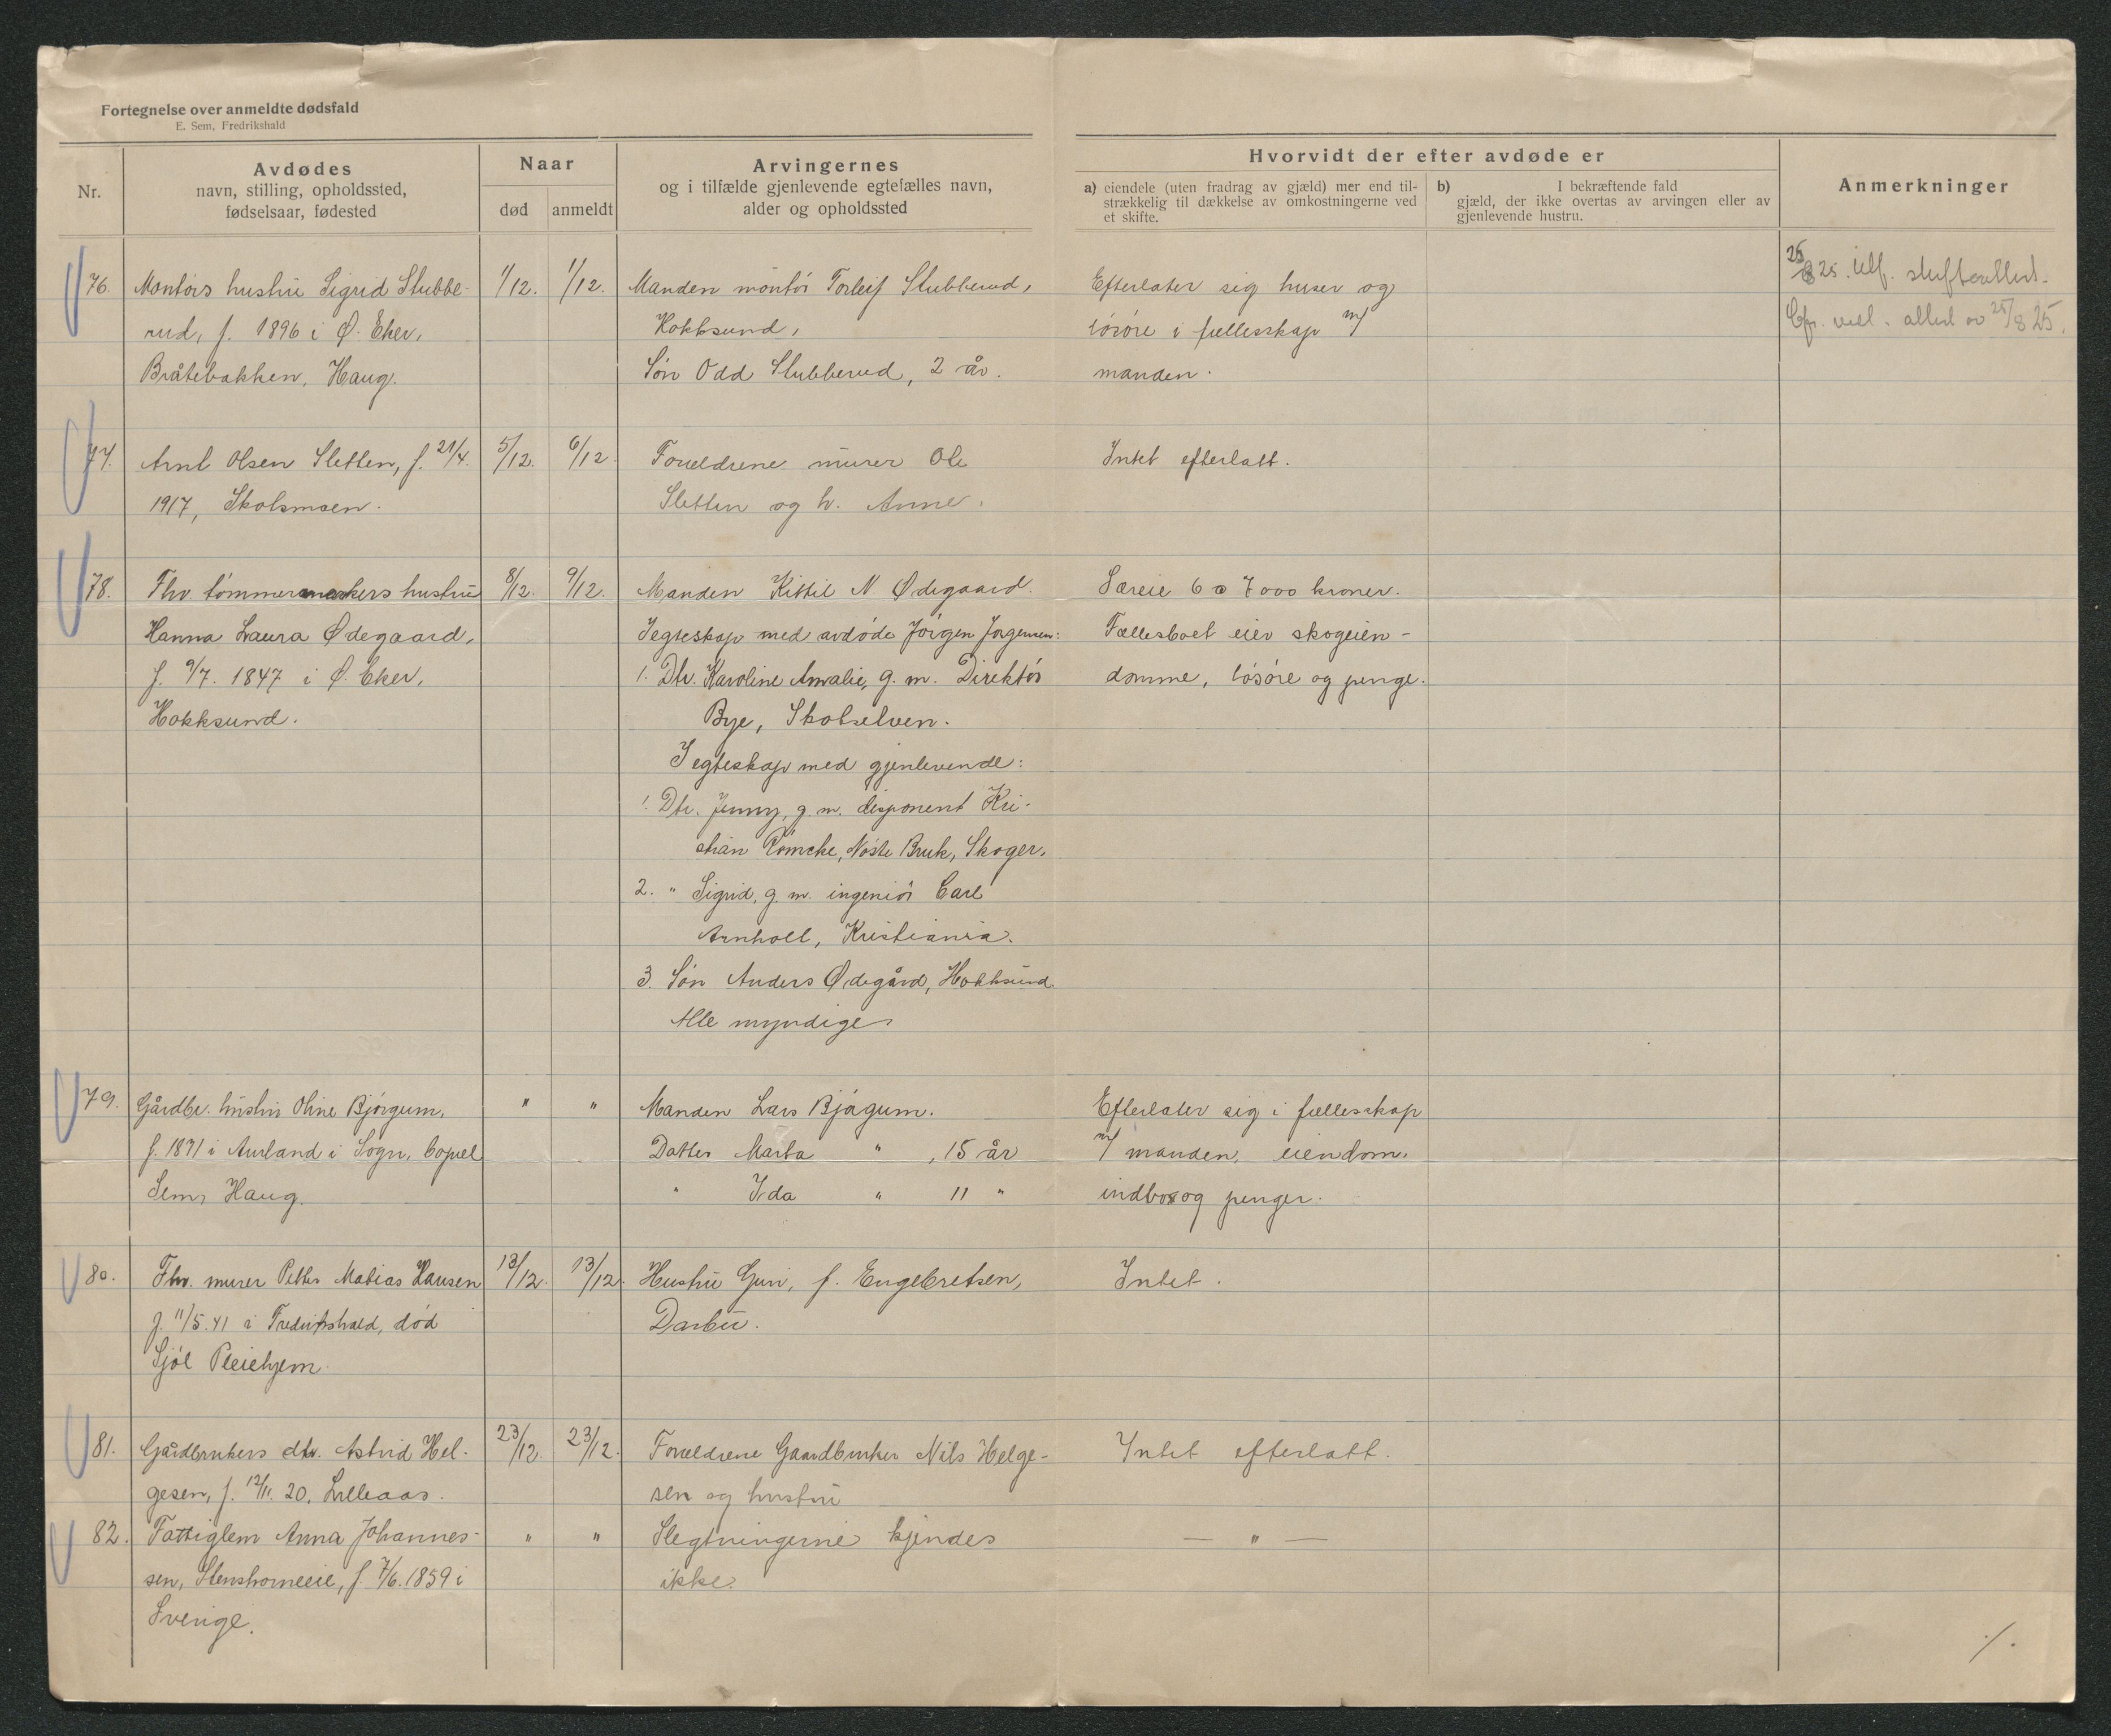 Fortegnelse over anmeldte dødsfald
E. Sem, Fredrikshald
Nr.
Avdødes
navn, stilling, opholdssted,
fødselsaar, fødested
Naar
død
anmeldt
Arvingernes
og i tilfælde gjenlevende egtefælles navn,
alder og opholdssted
Hvorvidt der efter avdøde er
a) eiendele (uten fradrag av gjæld) mer end til-
strækkelig til dækkelse av omkostningerne ved
et skifte.
b) I bekræftende fald
gjæld, der ikke overtas av arvingen eller av
gjenlevende hustru.
Anmerkninger
76. Montørs hustru Sigrid Stubbe-
rud, f. 1896 i Ø. Eker,
Bråtebakken, Haug.
1/12. 1/12.
Manden montør Torleif Stubberud,
Hokksund,
Søn Odd Stubberud, 2 år.
Efterlater sig huser og
løsøre i fællesskap m/
manden.
25/8 25. Utf. skifteattest.
25/8 25.
77. Arnt Olsen Sletten, f. 21/4.
1917, Skolsmoen.
5/12. 6/12.
Forældrene murer Ole
Sletten og h. Anne.
Intet efterlatt.
78. Fhv. tømmermerkers hustru
Hanna Laura Ødegaard,
f. 9/7. 1847 i Ø. Eker,
Hokksund.
8/12. 9/12.
Manden Kittil N Ødegaard.
I egteskap med avdøde Jørgen Jørgensen:
1. Dtr. Karoline Amalie, g. m. Direktør
Bye, Skotselven.
I egteskap med gjenlevende:
1. Dtr. Jenny, g. m. disponent Kri-
stian Rømcke, Nøste Bruk, Skoger.
2. " Sigrid, g. m. ingeniør Carl
Arnholt, Kristiania.
3. Søn Anders Ødegård, Hokksund.
Alle myndige
Særeie 6 a 7000 kroner.
Fællesboet eier skogeien-
domme, løsøre og penge.
79. Gårdbr. hustru Oline Bjørgum,
f. 1871 i Aurland i Sogn,
Sem, Haug.
" "
Manden Lars Bjørgum.
Datter Marta " , 15 år
" Ida " 11 "
Efterlater sig i fællesskap
m/ manden, eiendom,
indbo og penger.
80. Fhv. murer Petter Matias Hansen
f. 11/5.41 i Fredrikshald, død
Sjøl Pleiehjem.
13/12. 13/12.
Hustru Guri, f. Engebretsen,
Darbu.
Intet.
81. Gårdbrukers dtr. Astrid Hel-
gesen, f. 12/11. 20, Lilleaas.
23/12. 23/12.
Forældrene Gaardbruker Nils Helge-
sen og hustru
Intet efterlatt.
82. Fattiglem Anna Johannes-
sen, f. 7/6. 1859 i
Sverige.
" "
Slegtningerne kjendes
ikke.
— " —
./.